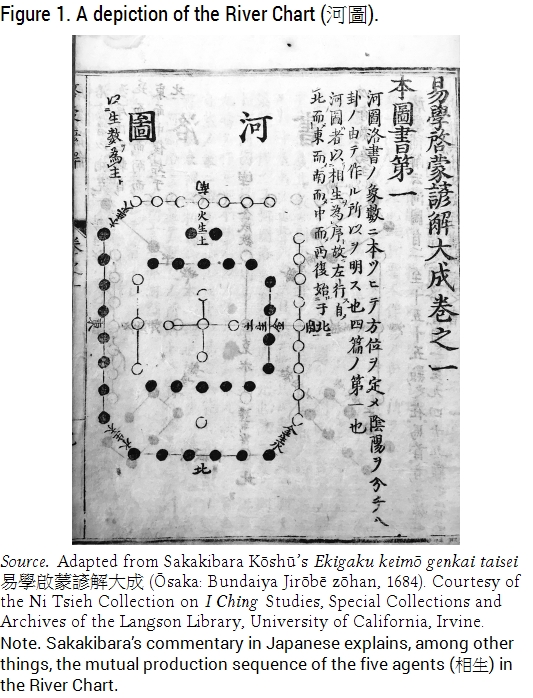 Figure 1. A depiction of the River Chart (河圖).
易學啓蒙諺解大成卷之一
本圖書第一
河圖洛書ノ象數ニ本ツヒテ方位ヲ定メ陰陽ヲ分チ八
卦ノ由テ作ル所以ヲ明ス也四篇ノ第一也
河圖者以相生為序故左行自
北而東而南而中而西復始于北
河圖
以生數為主
南
火生土
木生火
土生金
西
東
水生木
金生水
北
Source. Adapted from Sakakibara Kōshū's Ekigaku keimō genkai taisei
易學啟蒙諺解大成 (Ōsaka: Bundaiya Jirōbē zōhan, 1684). Courtesy of
the Ni Tsieh Collection on I Ching Studies, Special Collections and
Archives of the Langson Library, University of California, Irvine.
Note. Sakakibara's commentary in Japanese explains, among other
things, the mutual production sequence of the five agents (相生) in
the River Chart.